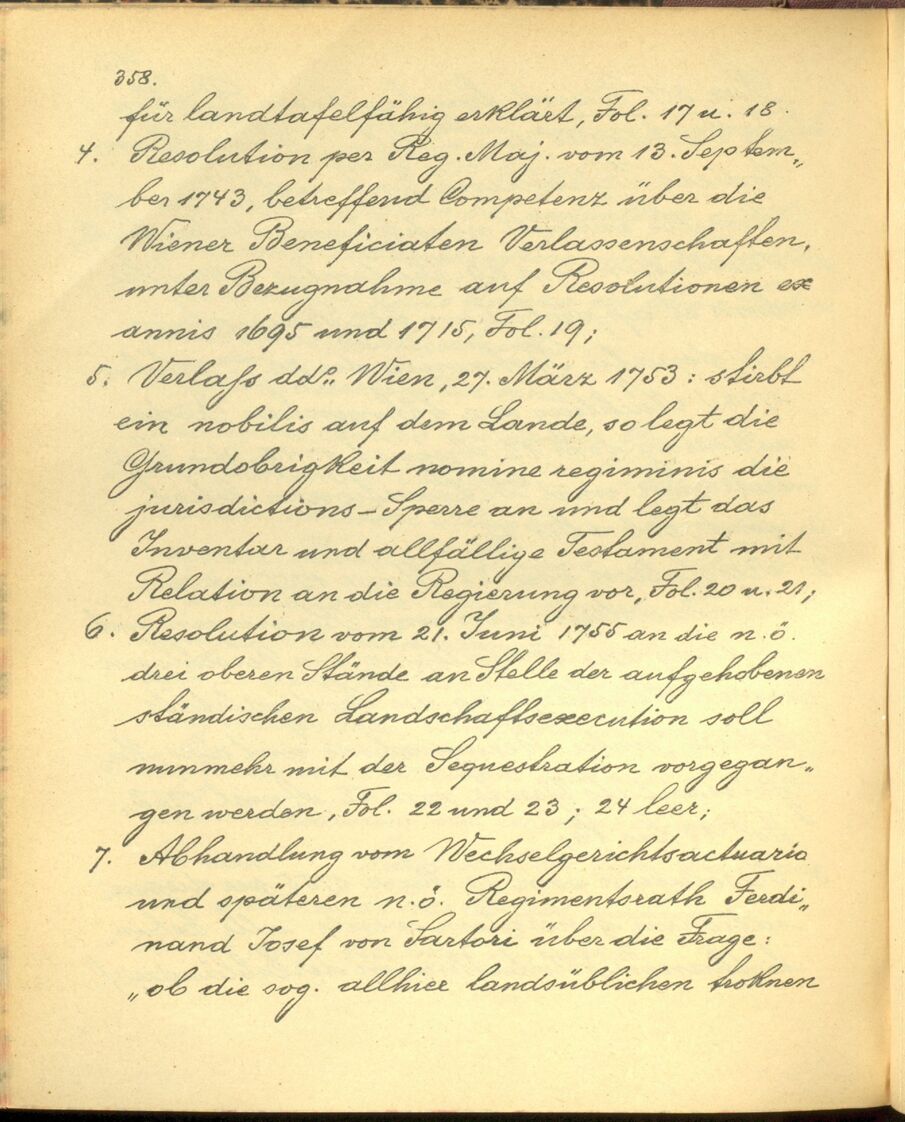 358.
für landtafelfähig erklärt, Fol. 17 u. 18.
4. Resolution per Reg. Maj. vom 13. Septem„
ber 1743, betreffend Competenz über die
Wiener Beneficiaten Verlassenschaften,
unter Bezugnahme auf Resolutionen ex
annis 1695 und 1715, Fol. 19;
5. Verlaß ddo„ Wien, 27. März 1753: stirbt
ein nobilis auf dem Lande, so legt die
Grundobrigkeit nomine regiminis die
jurisdictions-Sperre an und legt das
Inventar und allfällige Testament mit
Relation an die Regierung vor, Fol. 20 u. 21;
6. Resolution vom 21. Juni 1755 an die n. ö.
drei oberen Stände an Stelle der aufgehobenen
ständischen Landschaftsexecution soll
nunmehr mit der Sequestration vorgegan„
gen werden, Fol. 22 und 23; 24 leer;
7. Abhandlung vom Wechselgerichtsactuario
und späteren n. ö. Regimentsrath Ferdi„
nand Josef von Sartori über die Frage:
„ob die sog. allhier landsüblichen troknen